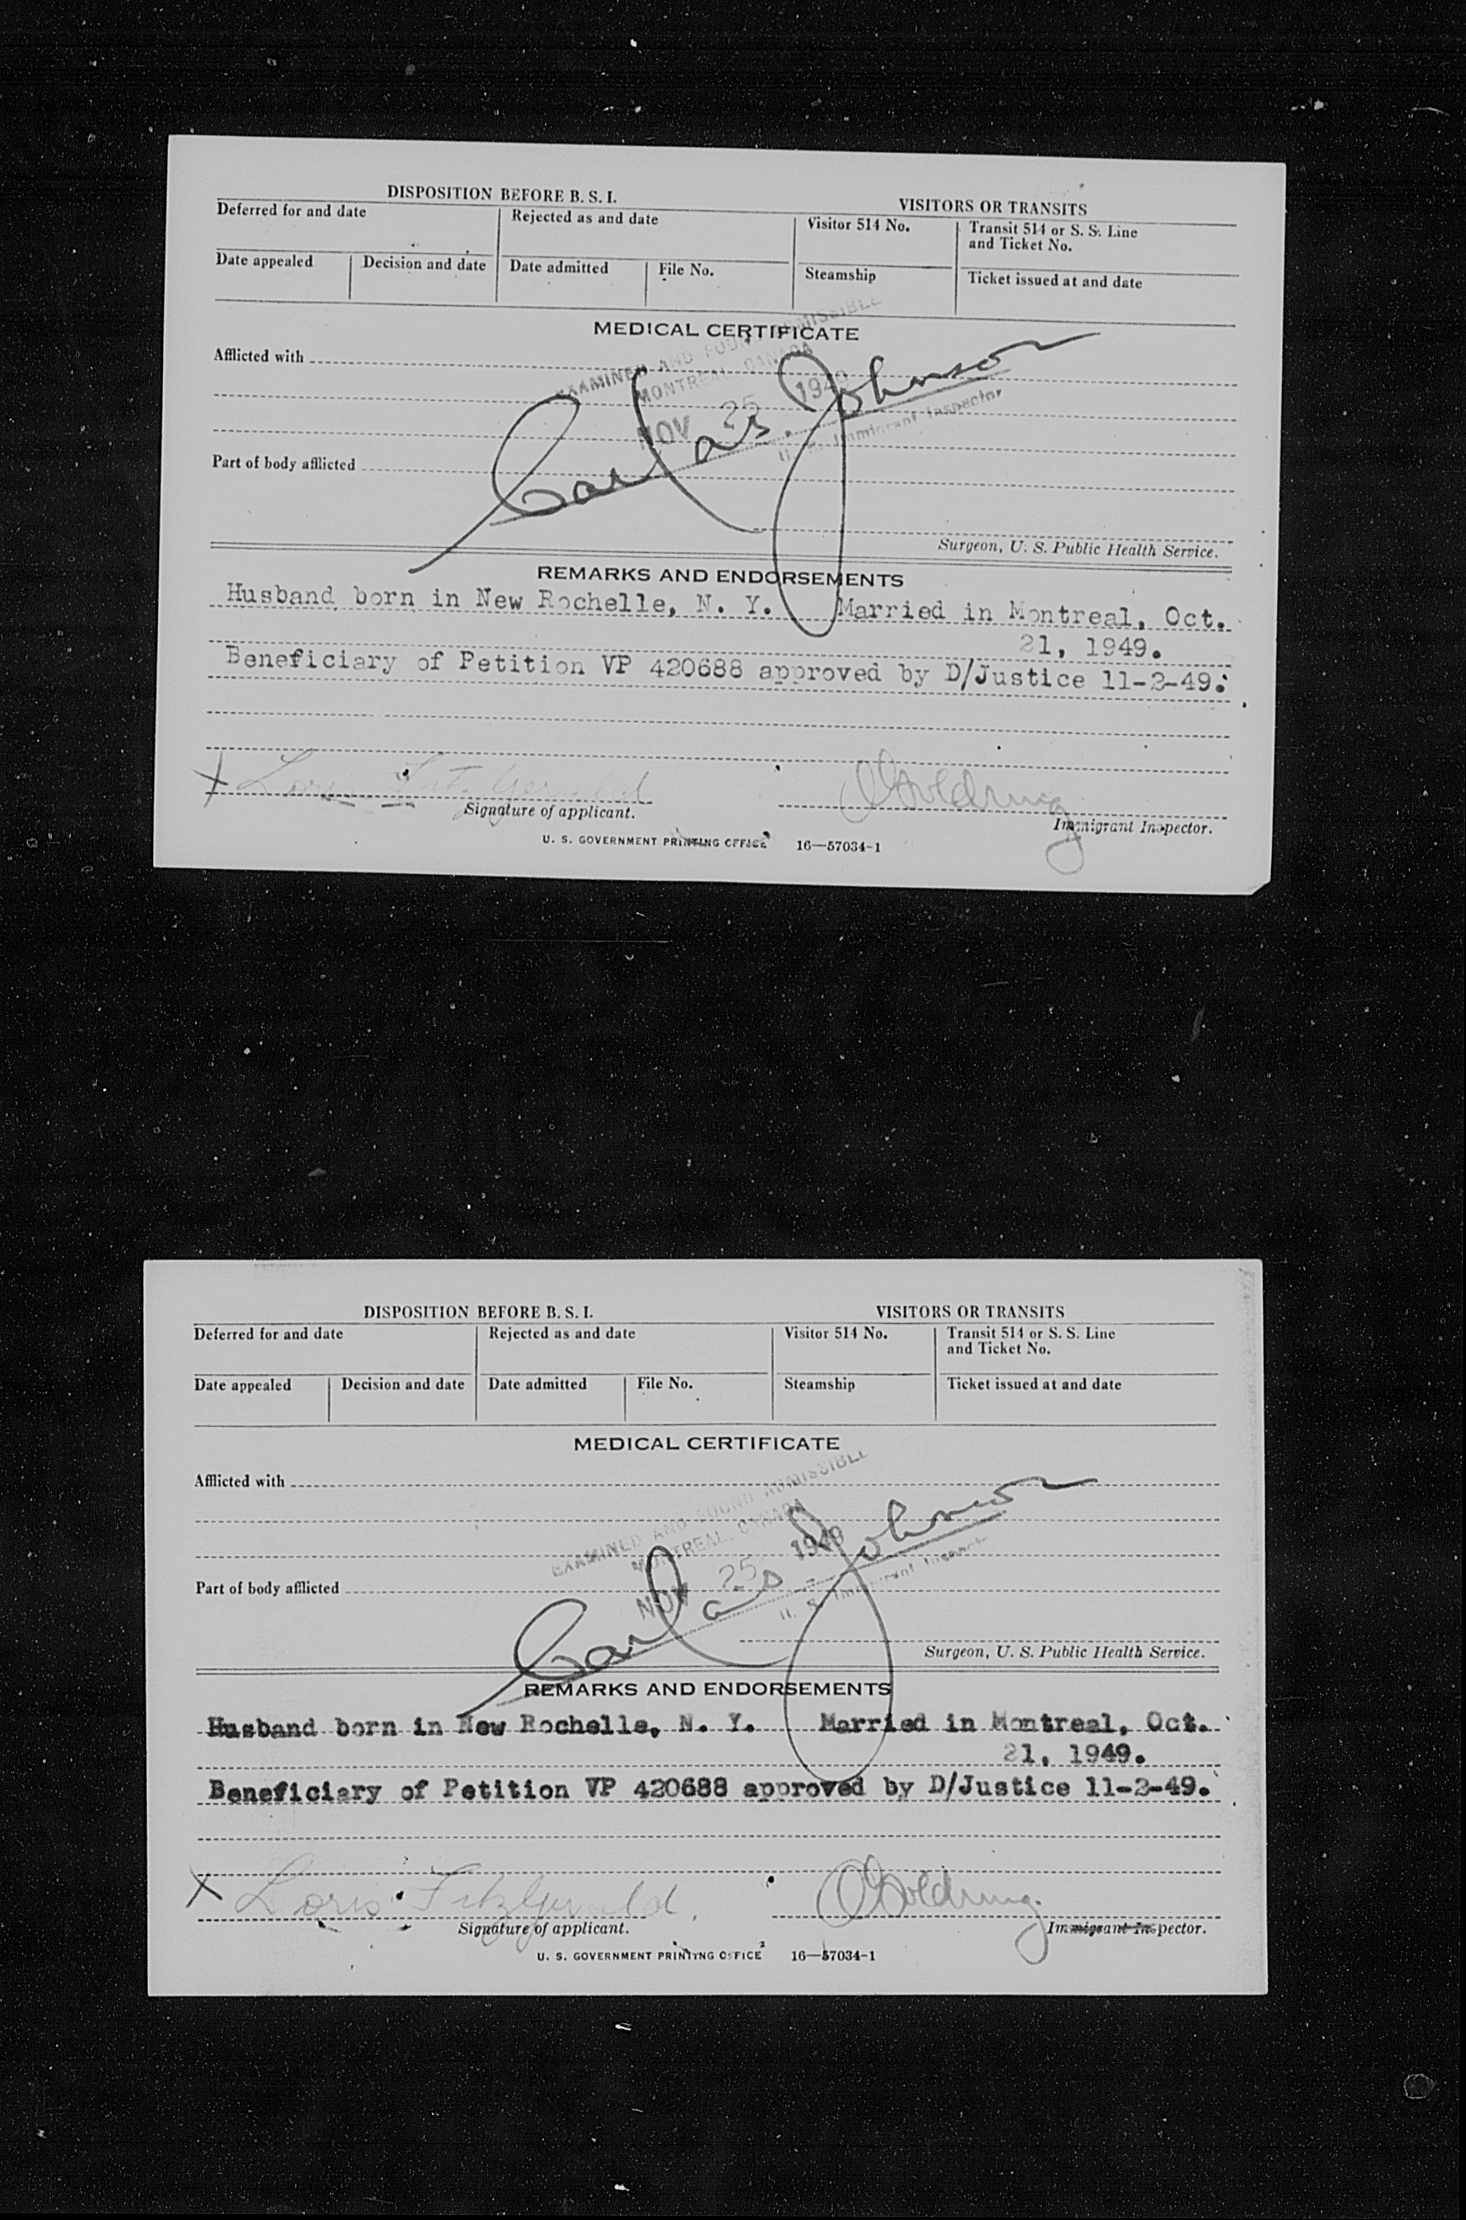 DISPOSITION BEFORE B. S. I.
VISITORS OR TRANSITS
Deferred for and date
Rejected as and date
Visitor 514 No.
Transit 514 or S. S. Line
and Ticket No.
Date appealed
Decision and date
Date admitted
File No.
Steamship
Ticket issued at and date
MEDICAL CERTIFICATE
Afflicted with
EXAMINED AND FOUND ADMISSIBLE
MONTREAL CANADA
NOV 25 1949
Carl as. Johnson
U. S. Immigrant Inspector
Part of body afflicted
Surgeon, U. S. Public Health Service.
REMARKS AND ENDORSEMENTS
Husband born in New Rochelle, N. Y. Married in Montreal, Oct.
21, 1949.
Beneficiary of Petition VP 420688 approved by D/Justice 11-2-49.
X Loris Fitzgerald
Goldring
Signature of applicant.
Immigrant Inspector.
U. S. GOVERNMENT PRINTING OFFICE 16—57034-1
DISPOSITION BEFORE B. S. I.
VISITORS OR TRANSITS
Deferred for and date
Rejected as and date
Visitor 514 No.
Transit 514 or S. S. Line
and Ticket No.
Date appealed
Decision and date
Date admitted
File No.
Steamship
Ticket issued at and date
MEDICAL CERTIFICATE
Afflicted with
EXAMINED AND FOUND ADMISSIBLE
MONTREAL CANADA
NOV 25 1949
Carl as. Johnson
U. S. Immigrant Inspector
Part of body afflicted
Surgeon, U. S. Public Health Service.
REMARKS AND ENDORSEMENTS
Husband born in New Rochelle, N. Y. Married in Montreal, Oct.
21, 1949.
Beneficiary of Petition VP 420688 approved by D/Justice 11-2-49.
X Loris Fitzgerald.
Goldring
Signature of applicant.
Immigrant Inspector.
U. S. GOVERNMENT PRINTING OFFICE 16—57034-1